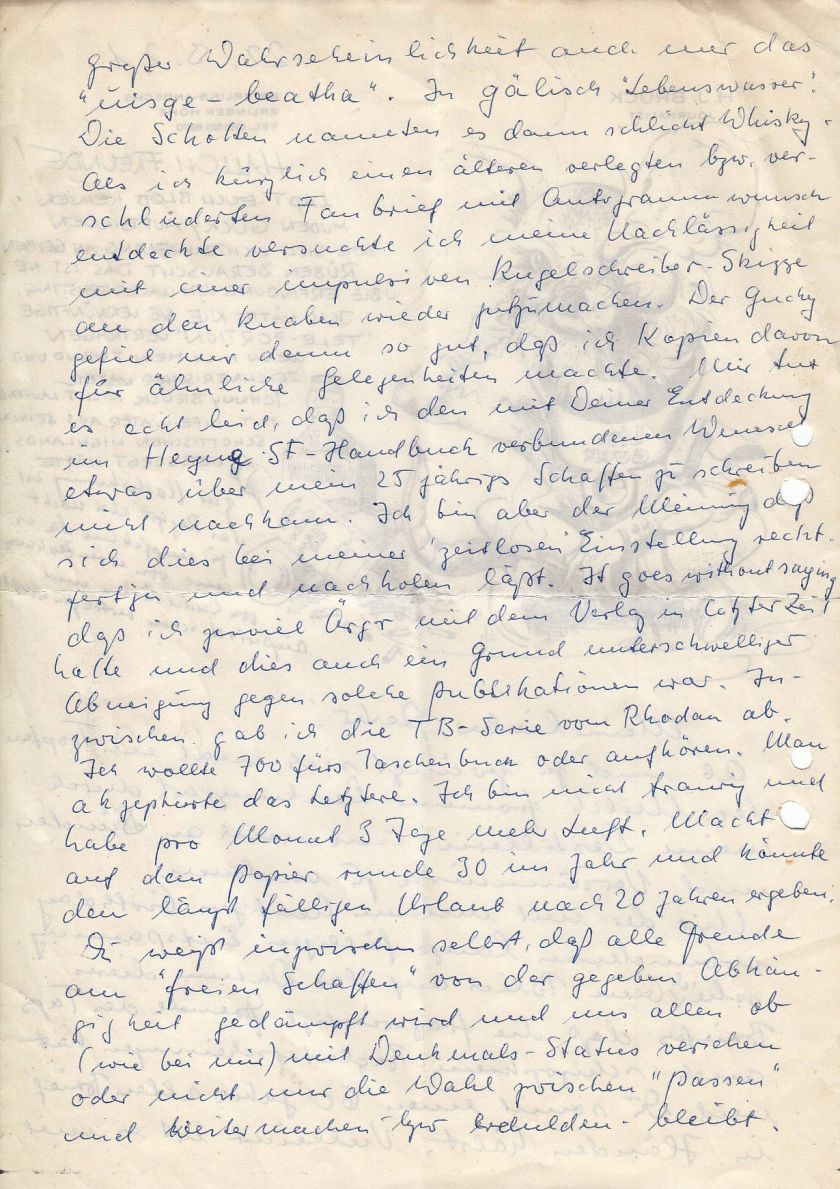 großer Wahrscheinlichkeit auch nur das
"uisge-beatha". In gälisch "Lebenswasser".
Die Schotten nannten es dann schlicht Whisky.
Als ich kürzlich einen älteren verlegten bzw. ver-
schluderten Fanbrief mit Autogrammwunsch
entdeckte versuchte ich meine Nachlässigkeit
mit einer impulsiven Kugelschreiber-Skizze
an den Knaben wieder gutzumachen. Der Gucky
gefiel mir dann so gut, daß ich Kopien davon
für ähnliche Gelegenheiten machte. Mir tut
es echt leid, daß ich den mit Deiner Entdeckung
im Heyne SF-Handbuch verbundenen Wunsch
etwas über mein 25 jährigs Schaffen zu schreiben
nicht nachkam. Ich bin aber der Meinung daß
sich dies bei meiner 'zeitlosen' Einstellung recht-
fertign und nachholen läßt. It goes without saying
daß ich zuviel Ärgr mit dem Verlag in letzter Zeit
hatte und dies auch ein Grund unterschwelliger
Abneigung gegen solche Publikationen war. In-
zwischen gab ich die TB-Serie vom Rhodan ab.
Ich wollte 700 fürs Taschenbuch oder aufhören. Man
akzeptierte das Letztere. Ich bin nicht traurig und
habe pro Monat 3 Tage mehr Luft. Macht
auf dem Papier runde 30 im Jahr und könnte
den längst fälligen Urlaub nach 20 Jahren ergeben.
Du weißt inzwischen selbst, daß alle Freude
am "freien Schaffen" von der gegeben Abhän-
gigkeit gedämpft wird und uns allen ob
(wie bei mir) mit Denkmals-Status versehen
oder nicht nur die Wahl zwischen "passen"
und weitermachen - bzw erdulden - bleibt.